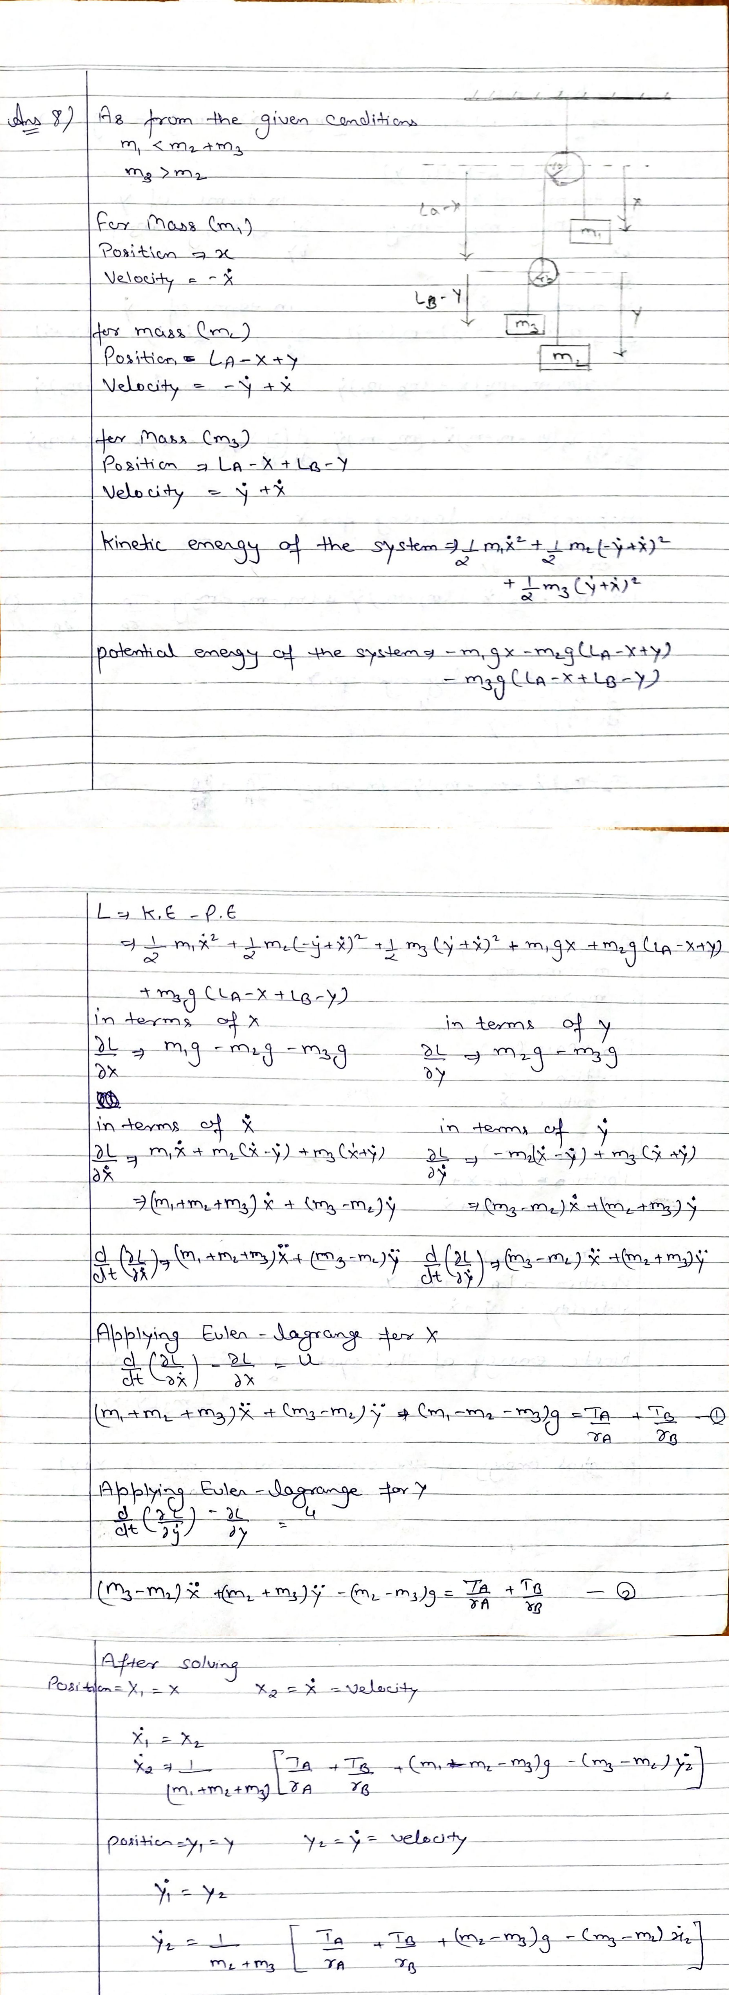 Ans 8) As from the given conditions
m₁ < m₂ + m₃
m₃ > m₂
LA-X
x
m₁
For Mass (m₁)
Position ⇒ x
Velocity = - ẋ
LB - Y
Y
m₃
m₂
for mass (m₂)
Position = LA - X + Y
Velocity = - ẏ + ẋ
for Mass (m₃)
Position ⇒ LA - X + LB - Y
Velocity = ẏ + ẋ
Kinetic energy of the system ⇒ 1/2 m₁ẋ² + 1/2 m₂(-ẏ+ẋ)²
+ 1/2 m₃(ẏ+ẋ)²
potential energy of the system ⇒ - m₁gx - m₂g(LA-X+Y)
- m₃g(LA-X+LB-Y)
L ⇒ K.E - P.E
⇒ 1/2 m₁ẋ² + 1/2 m₂(-ẏ+ẋ)² + 1/2 m₃(ẏ+ẋ)² + m₁gx + m₂g(LA-X+Y)
+ m₃g(LA-X+LB-Y)
in terms of x
∂L/∂x ⇒ m₁g - m₂g - m₃g
in terms of y
∂L/∂y ⇒ m₂g - m₃g
in terms of ẋ
∂L/∂ẋ ⇒ m₁ẋ + m₂(ẋ-ẏ) + m₃(ẋ+ẏ)
⇒ (m₁+m₂+m₃)ẋ + (m₃-m₂)ẏ
d/dt (∂L/∂ẋ) ⇒ (m₁+m₂+m₃)ẍ + (m₃-m₂)ÿ
in terms of ẏ
∂L/∂ẏ ⇒ - m₂(ẋ-ẏ) + m₃(ẋ+ẏ)
⇒ (m₃-m₂)ẋ + (m₂+m₃)ẏ
d/dt (∂L/∂ẏ) ⇒ (m₃-m₂)ẍ + (m₂+m₃)ÿ
Applying Euler - lagrange for X
d/dt (∂L/∂ẋ) - ∂L/∂x = u
(m₁+m₂+m₃)ẍ + (m₃-m₂)ÿ (m₁-m₂-m₃)g = TA/rA + TB/rB - ①
Applying Euler - lagrange for Y
d/dt (∂L/∂ẏ) - ∂L/∂y = u
(m₃-m₂)ẍ + (m₂+m₃)ÿ - (m₂-m₃)g = TA/rA + TB/rB - ②
After solving
Position = X₁ = x X₂ = ẋ = velocity
ẋ₁ = x₂
ẋ₂ ⇒ 1/(m₁+m₂+m₃) [TA/rA + TB/rB + (m₁-m₂-m₃)g - (m₃-m₂)ẏ₂]
position = y₁ = y y₂ = ẏ = velocity
ẏ₁ = y₂
ẏ₂ = 1/(m₂+m₃) [TA/rA + TB/rB + (m₂-m₃)g - (m₃-m₂)ẋ₂]